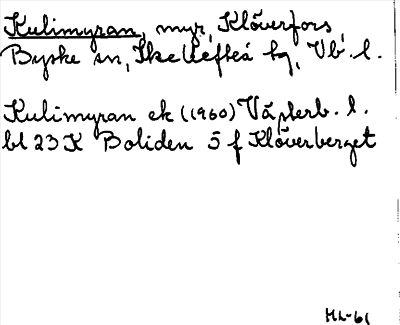 Kulimyran, myr, Klöverfors,
Byske sn, Skellefteå tg, Vb. l.
Kulimyran ek (1960) Västerb. l.
bl 23 K Boliden 5 f Klöverberget
ML-61